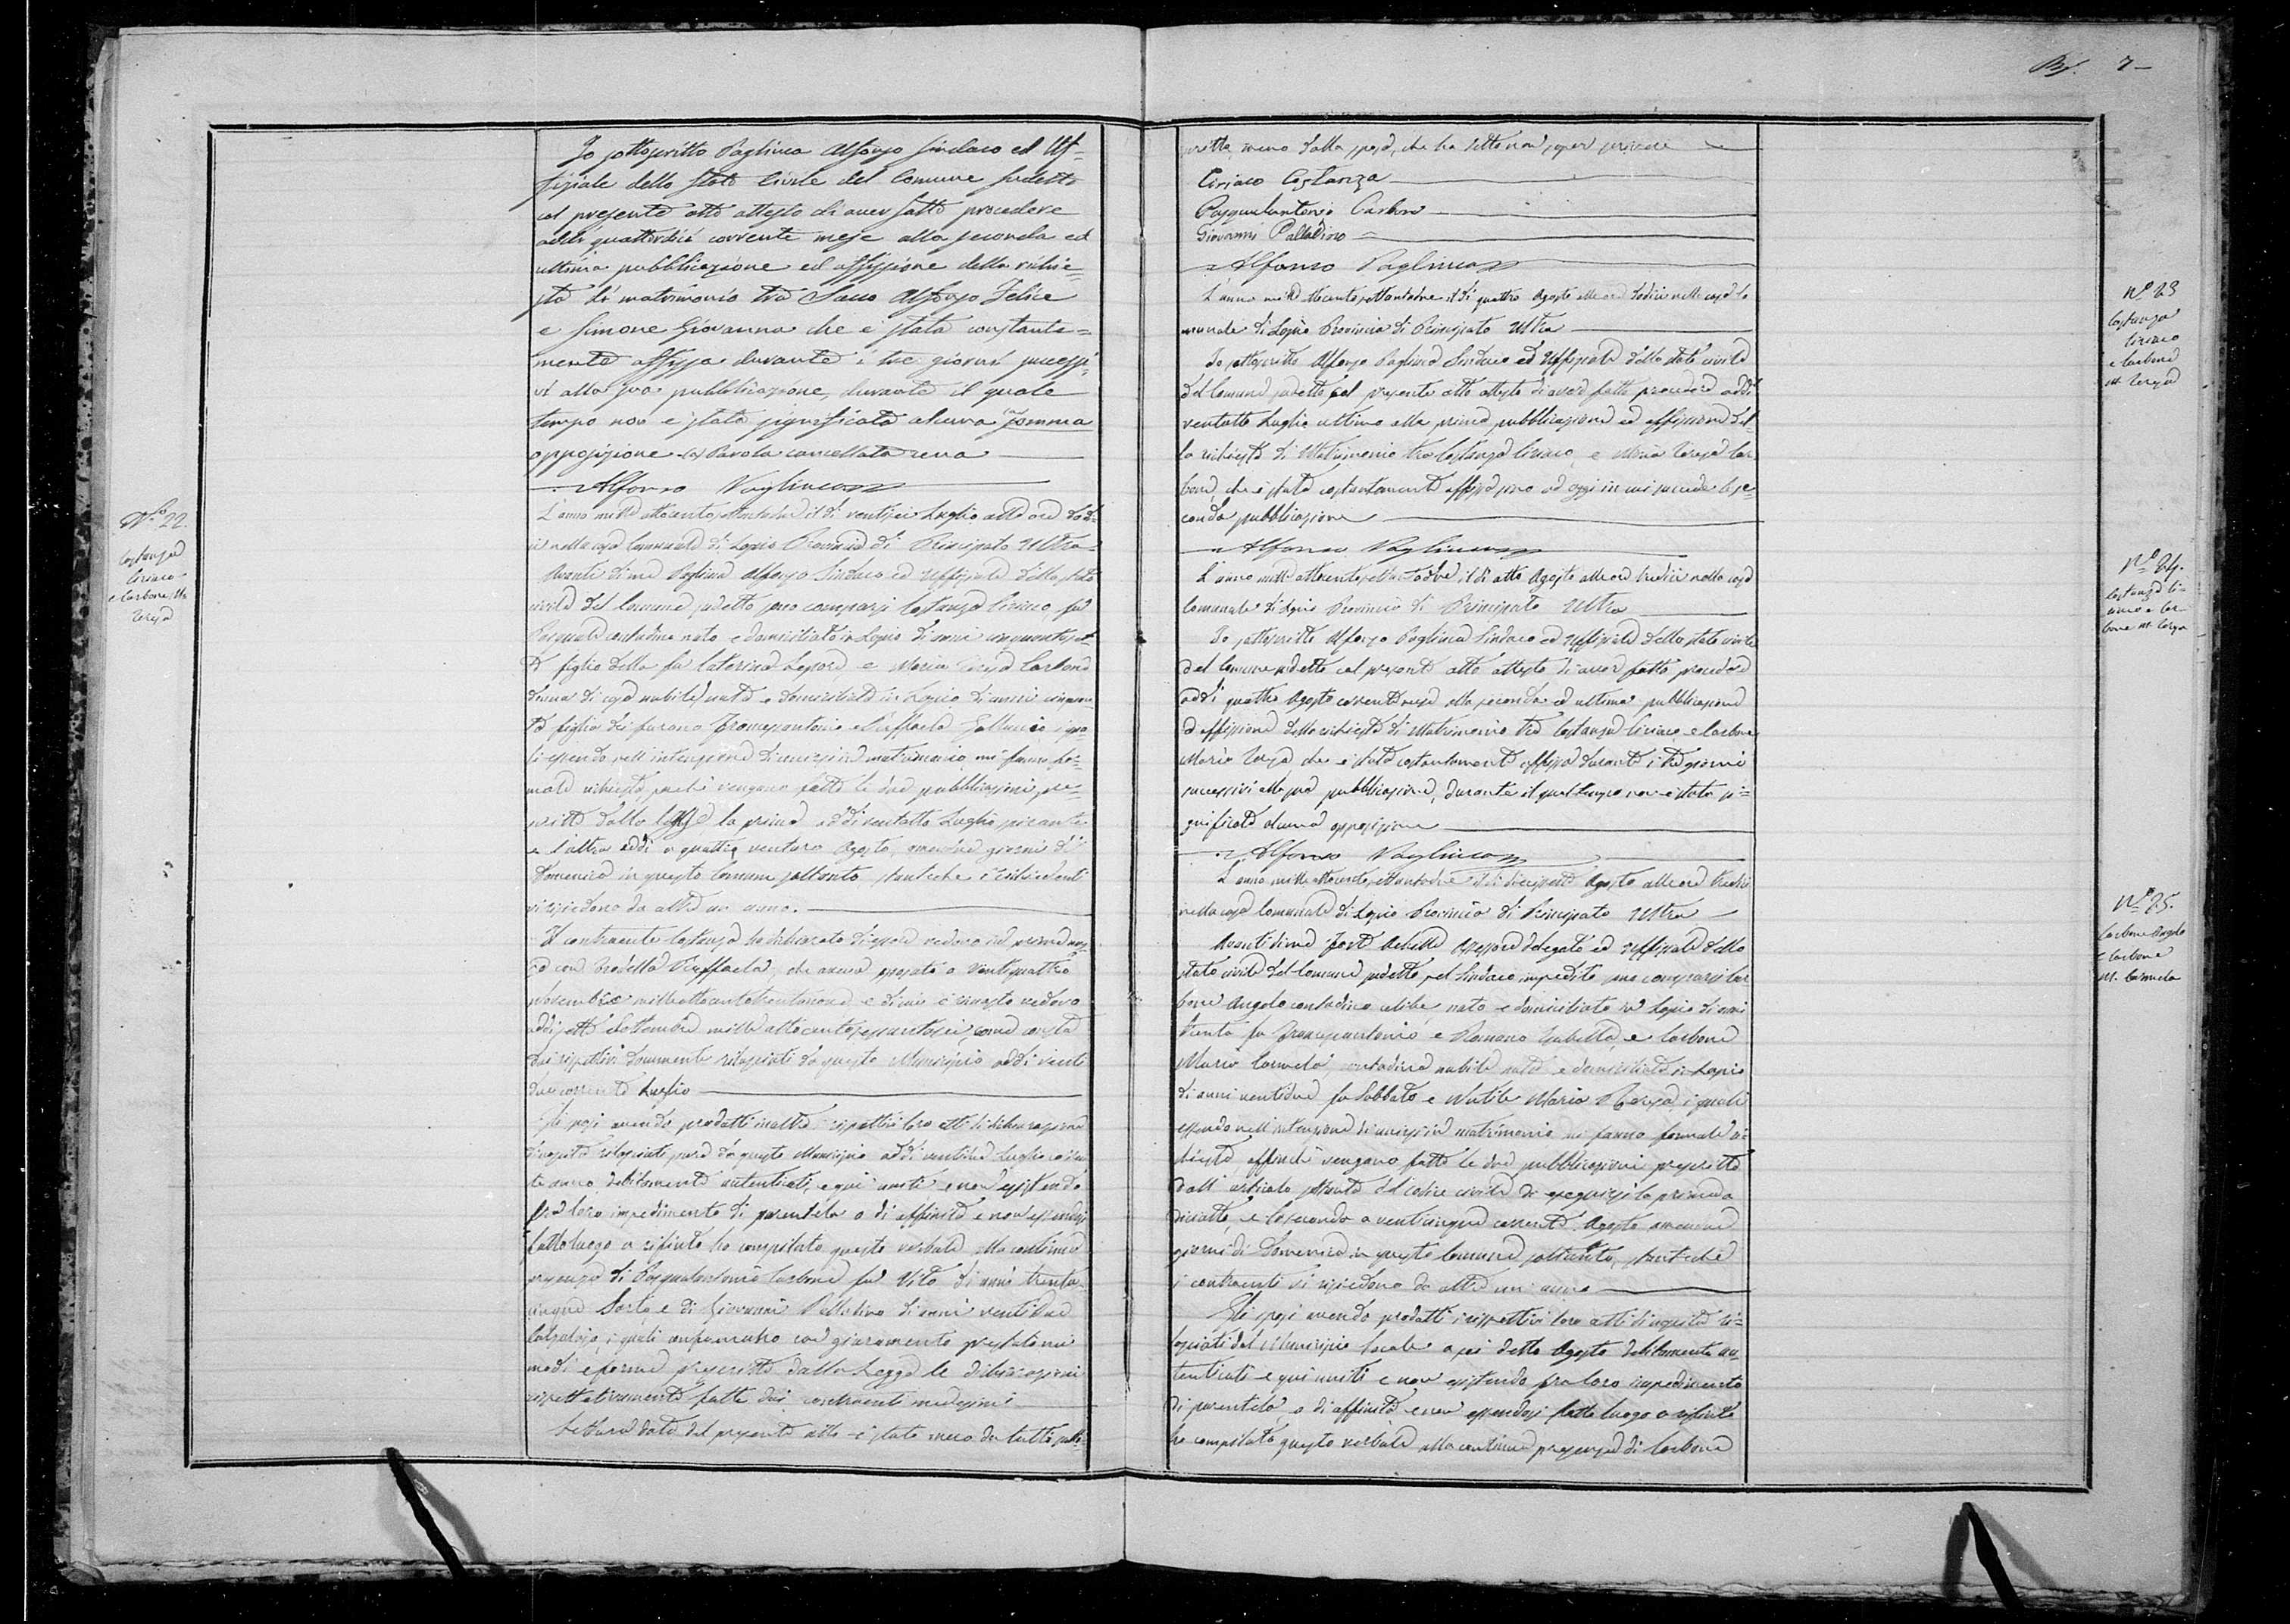 Io sottoscritto Pagliuca Alfonso Sindaco ed Uf=
fiziale dello Stato Civile del Comune sudetto
col presente atto attesto di aver fatto procedere
addì quattordici corrente mese alla seconda ed
ultima pubblicazione ed affissione della richie=
sta di matrimonio tra Sacco Alfonso Felice
e Simone Giovanna che è stata constante=
mente affissa durante i tre giorni successi=
vi alla sua pubblicazione, durante il quale
tempo non è stata significata alcuna
opposizione Parola cancellata
Alfonso Pagliuca
Nº 22.
Costanza
Ciriaco
e Carbone Ma
Teresa
L'anno mille ottocento settantadue il dì ventisei Luglio alle ore dodi=
ci nella casa Comunale di Lapio Provincia di Principato Ultra
Avanti di me Pagliuca Alfonso Sindaco ed Uffiziale dello stato
civile del Comune sudetto sono comparsi Costanza Ciriaco, fu
Pasquale contadino nato e domiciliato in Lapio di anni cinquantaset=
te figlio della fu Caterina e Maria Teresa Carbone
donna di casa nubile nata e domiciliata in Lapio di anni cinquan
ta figlia dei furono Francescantonio e Raffaela Galluccio i qua
li essendo nell'intenzione di unirsi in matrimonio, mi fanno for=
male richiesta, perchè vengano fatte le due pubblicazioni pre=
scritte dalla legge la prima addì ventotto Luglio
e l'altra addì quattro venturo Agosto, amendue giorni di
Domenica in questo Comune soltanto, stanteche i richiedenti
vi risiedono da oltre un anno.
Il contraente Costanza ha dichiarato di essere vedovo
con Raffaela, che aveva sposata a ventiquattro
novembre mille ottocento trentanove e di cui è rimasto vedovo
addì sette Settembre mille ottocento sessantasei, come consta
dai rispettivi documenti rilasciati da questo Municipio addì venti
due corrente Luglio
Gli sposi avendo prodotti inoltre i rispettivi loro atti di
nascita rilasciati pure da questo Municipio addì ventidue Luglio
anno debitamente autenticati, e qui uniti e non esistendo
fra loro impedimento di parentela o di affinità e non essendosi
fatto luogo a rifiuto ho compilato questo verbale alla continua
presenza di Pasqualantonio Carbone fu Vito di anni trenta
cinque Sarto, e di Giovanni Palladino di anni ventidue
Calzolajo, i quali confermano con giuramento prestato nei
modi e forme prescritte dalla Legge le dichiarazioni
rispettivamente fatte dai contraenti medesimi
Lettura data del presente atto è stato meco da tutti sotto=
7
scritto, meno dalla sposa, che ha detto non saper scrivere
Ciriaco Costanza
Pasqualantonio Carbone
Giovanni Palladino
Alfonso Pagliuca
Nº 23
Costanza
Ciriaco
e Carbone
M. Teresa
L'anno mille ottocento settantadue il dì quattro Agosto alle ore dodici nella casa Co
munale di Lapio Provincia di Principato Ultra
Io sottoscritto Alfonso Pagliuca Sindaco ed Uffiziale dello stato civile
del Comune sudetto col presente atto attesto di aver fatto procedere addì
ventotto Luglio ultimo alla prima pubblicazione ed affissione del=
la richiesta di Matrimonio tra Costanza Ciriaco, e Maria Teresa Car
bone, che è stata costantemente affissa sino ad oggi in cui succede la se=
conda pubblicazione
Alfonso Pagliuca
Nº 24.
Costanza Ci=
riaco e Car=
bone M. Teresa
L'anno mille ottocento settantadue il dì otto Agosto alle ore tredici nella casa
Comunale di Lapio Provincia di Principato Ultra
Io sottoscritto Alfonso Pagliuca Sindaco ed Uffiziale dello stato civile
del Comune sudetto col presente atto attesto di aver fatto procedere
addì quattro Agosto corrente mese alla seconda ed ultima pubblicazione
ed affissione della richiesta di Matrimonio tra Costanza Ciriaco, e Carbone
Maria Teresa, che è stata costantemente affissa durante i tre giorni
successivi alla sua pubblicazione, durante il qual tempo non è stata si=
gnificata alcuna opposizione
Alfonso Pagliuca
Nº 25.
Carbone Angelo
e Carbone
M. Carmela
L'anno mille ottocento settantadue il dì Agosto alle ore tredici
nella casa Comunale di Lapio Provincia di Principato Ultra
Avanti di me Forte Achille Assessore delegato ed Uffiziale dello
stato civile del Comune sudetto, pel Sindaco impedito, sono comparsi Car
bone Angelo contadino celibe nato e domiciliato in Lapio di anni
trenta fu Francescantonio e Romano Isabella, e Carbone
Maria Carmela, contadina nubile nata e domiciliata in Lapio
di anni ventidue fu Sabbato e Nutile Maria Teresa, i quali
essendo nell'intenzione di unirsi in matrimonio mi fanno formale ri=
chiesta, affinchè vengano fatte le due pubblicazioni prescritte
dall'articolo settanta del codice civile da eseguirsi la prima a
diciotto, e la seconda a venticinque corrente Agosto amendue
giorni di Domenica in questo Comune soltanto, stanteche
i contraenti vi risiedono da oltre un anno
Gli sposi avendo prodotti i rispettivi loro atti di nascita ri=
lasciati dal Municipio locale a sei detto Agosto debitamente au=
tenticati e qui uniti e non esistendo fra loro impedimento
di parentela, o di affinità e non essendosi fatto luogo a rifiuto
ho compilato questo verbale alla continua presenza di Carbone